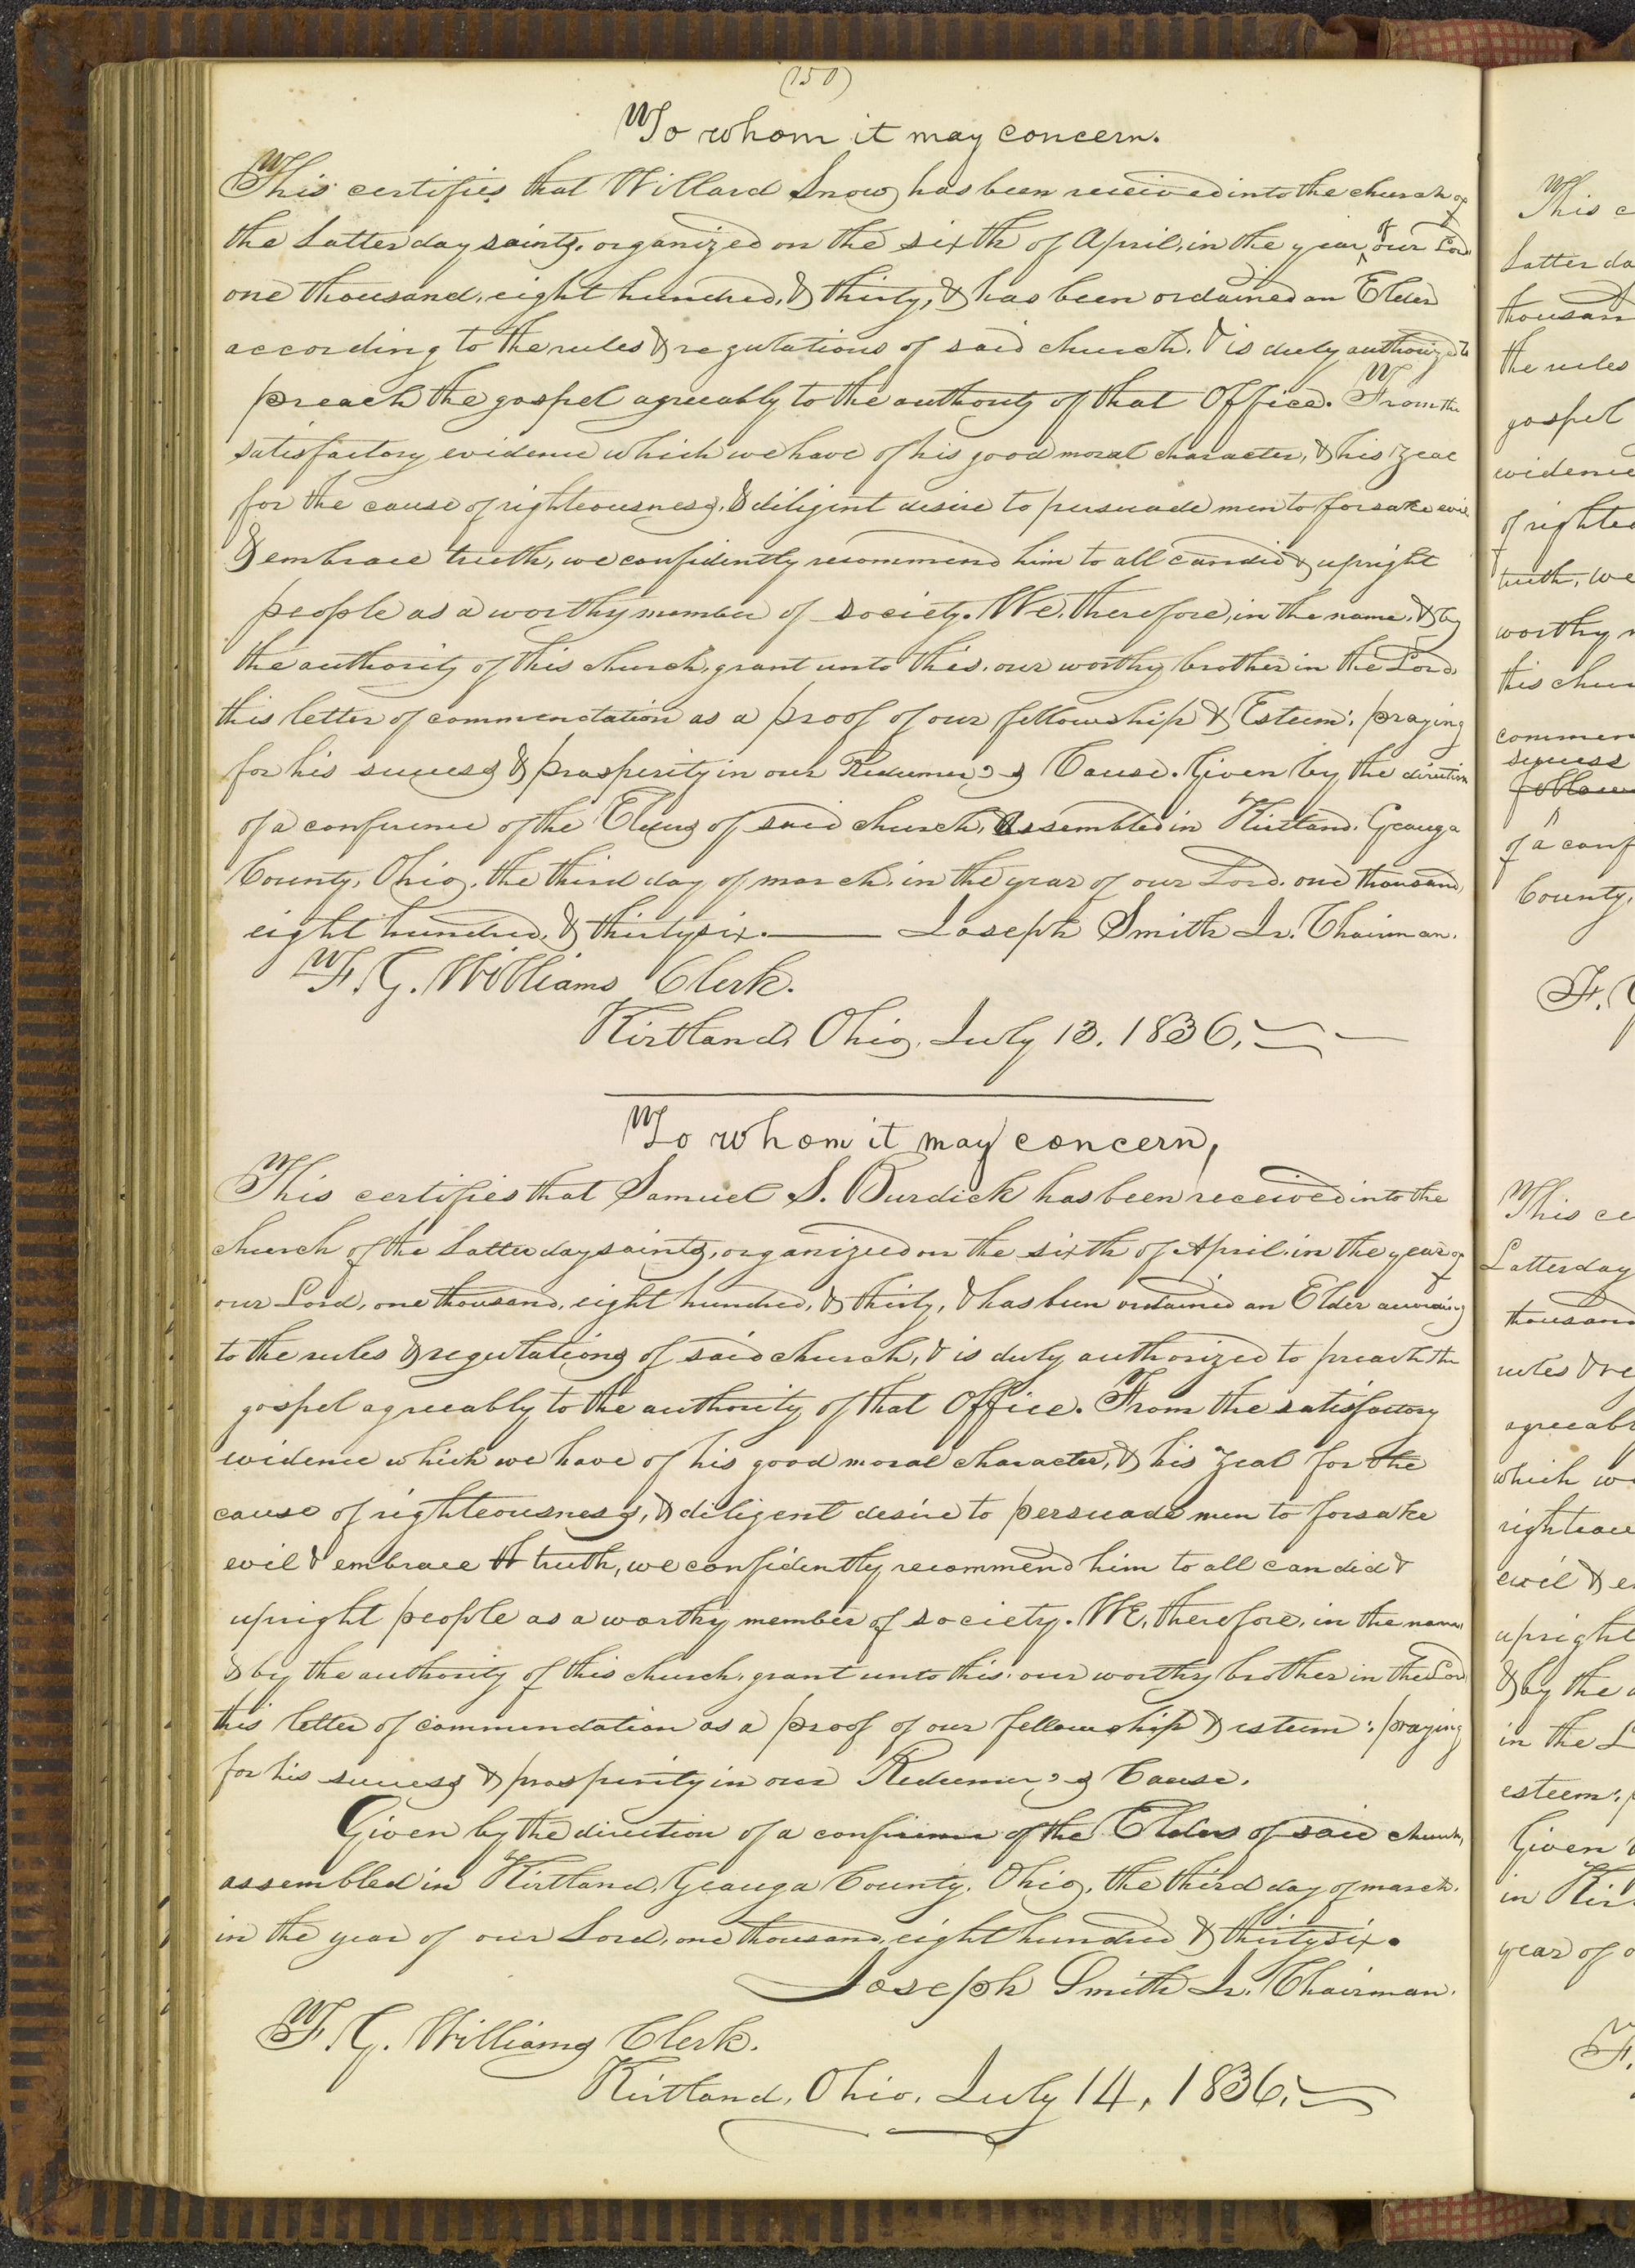 (150)
To whom it may concern.
This certifies that Willard Snow has been received into the church of
the Latter day saints, organized on the sixth of April, in the year of our Lord
one thousand, eight hundred, & thirty, & has been ordained an Elder
according to the rules & regulations of said church, & is duly authorized to
preach the gospel agreeably to the authority of that Office. From the
satisfactory evidence which we have of his good moral character, & his zeal
for the cause of righteousness, & diligent desire to persuade men to forsake evil
& embrace truth, we confidently recommend him to all candid & upright
people as a worthy member of society. We, therefore, in the name, & by
the authority of this church, grant unto this, our worthy brother in the Lord,
this letter of commendation as a proof of our fellowship & Esteem: praying
for his success & prosperity in our Redeemer's Cause. Given by the direction
of a conference of the Elders of said church, Assembled in Kirtland, Geauga
County, Ohio, the third day of march, in the year of our Lord, one thousand,
eight hundred, & thirty six. Joseph Smith Jr. Chairman.
F. G. Williams Clerk.
Kirtland, Ohio, July 13, 1836.
To whom it may concern,
This certifies that Samuel S. Burdick has been received into the
church of the Latter day saints, organized on the sixth of April, in the year of
our Lord, one thousand, eight hundred, & thirty, & has been ordained an Elder according
to the rules & regulations of said church, & is duly authorized to preach the
gospel agreeably to the authority of that Office. From the satisfactory
evidence which we have of his good moral character, & his zeal for the
cause of righteousness, & diligent desire to persuade men to forsake
evil & embrace truth, we confidently recommend him to all candid &
upright people as a worthy member of society. WE, therefore, in the name,
& by the authority of this church, grant unto this, our worthy brother in the Lord
this letter of commendation as a proof of our fellowship & esteem: praying
for his success & prosperity in our Redeemer's Cause.
Given by the direction of a conference of the Elders of said church,
assembled in Kirtland, Geauga County, Ohio, the third day of march,
in the year of our Lord, one thousand, eight hundred & thirty six.
Joseph Smith Jr. Chairman.
F. G. Williams Clerk.
Kirtland, Ohio, July 14, 1836.
This c
Latter da
thousan
the rules
gospel
evidence
of righteo
truth, we
worthy m
this chur
commen
success
of a conf
County,
F. G
This ce
Latterday
thousand
rules & re
agreeabl
which w
righteou
evil & e
upright
& by the a
in the L
esteem: p
Given
in Kir
year of o
F.